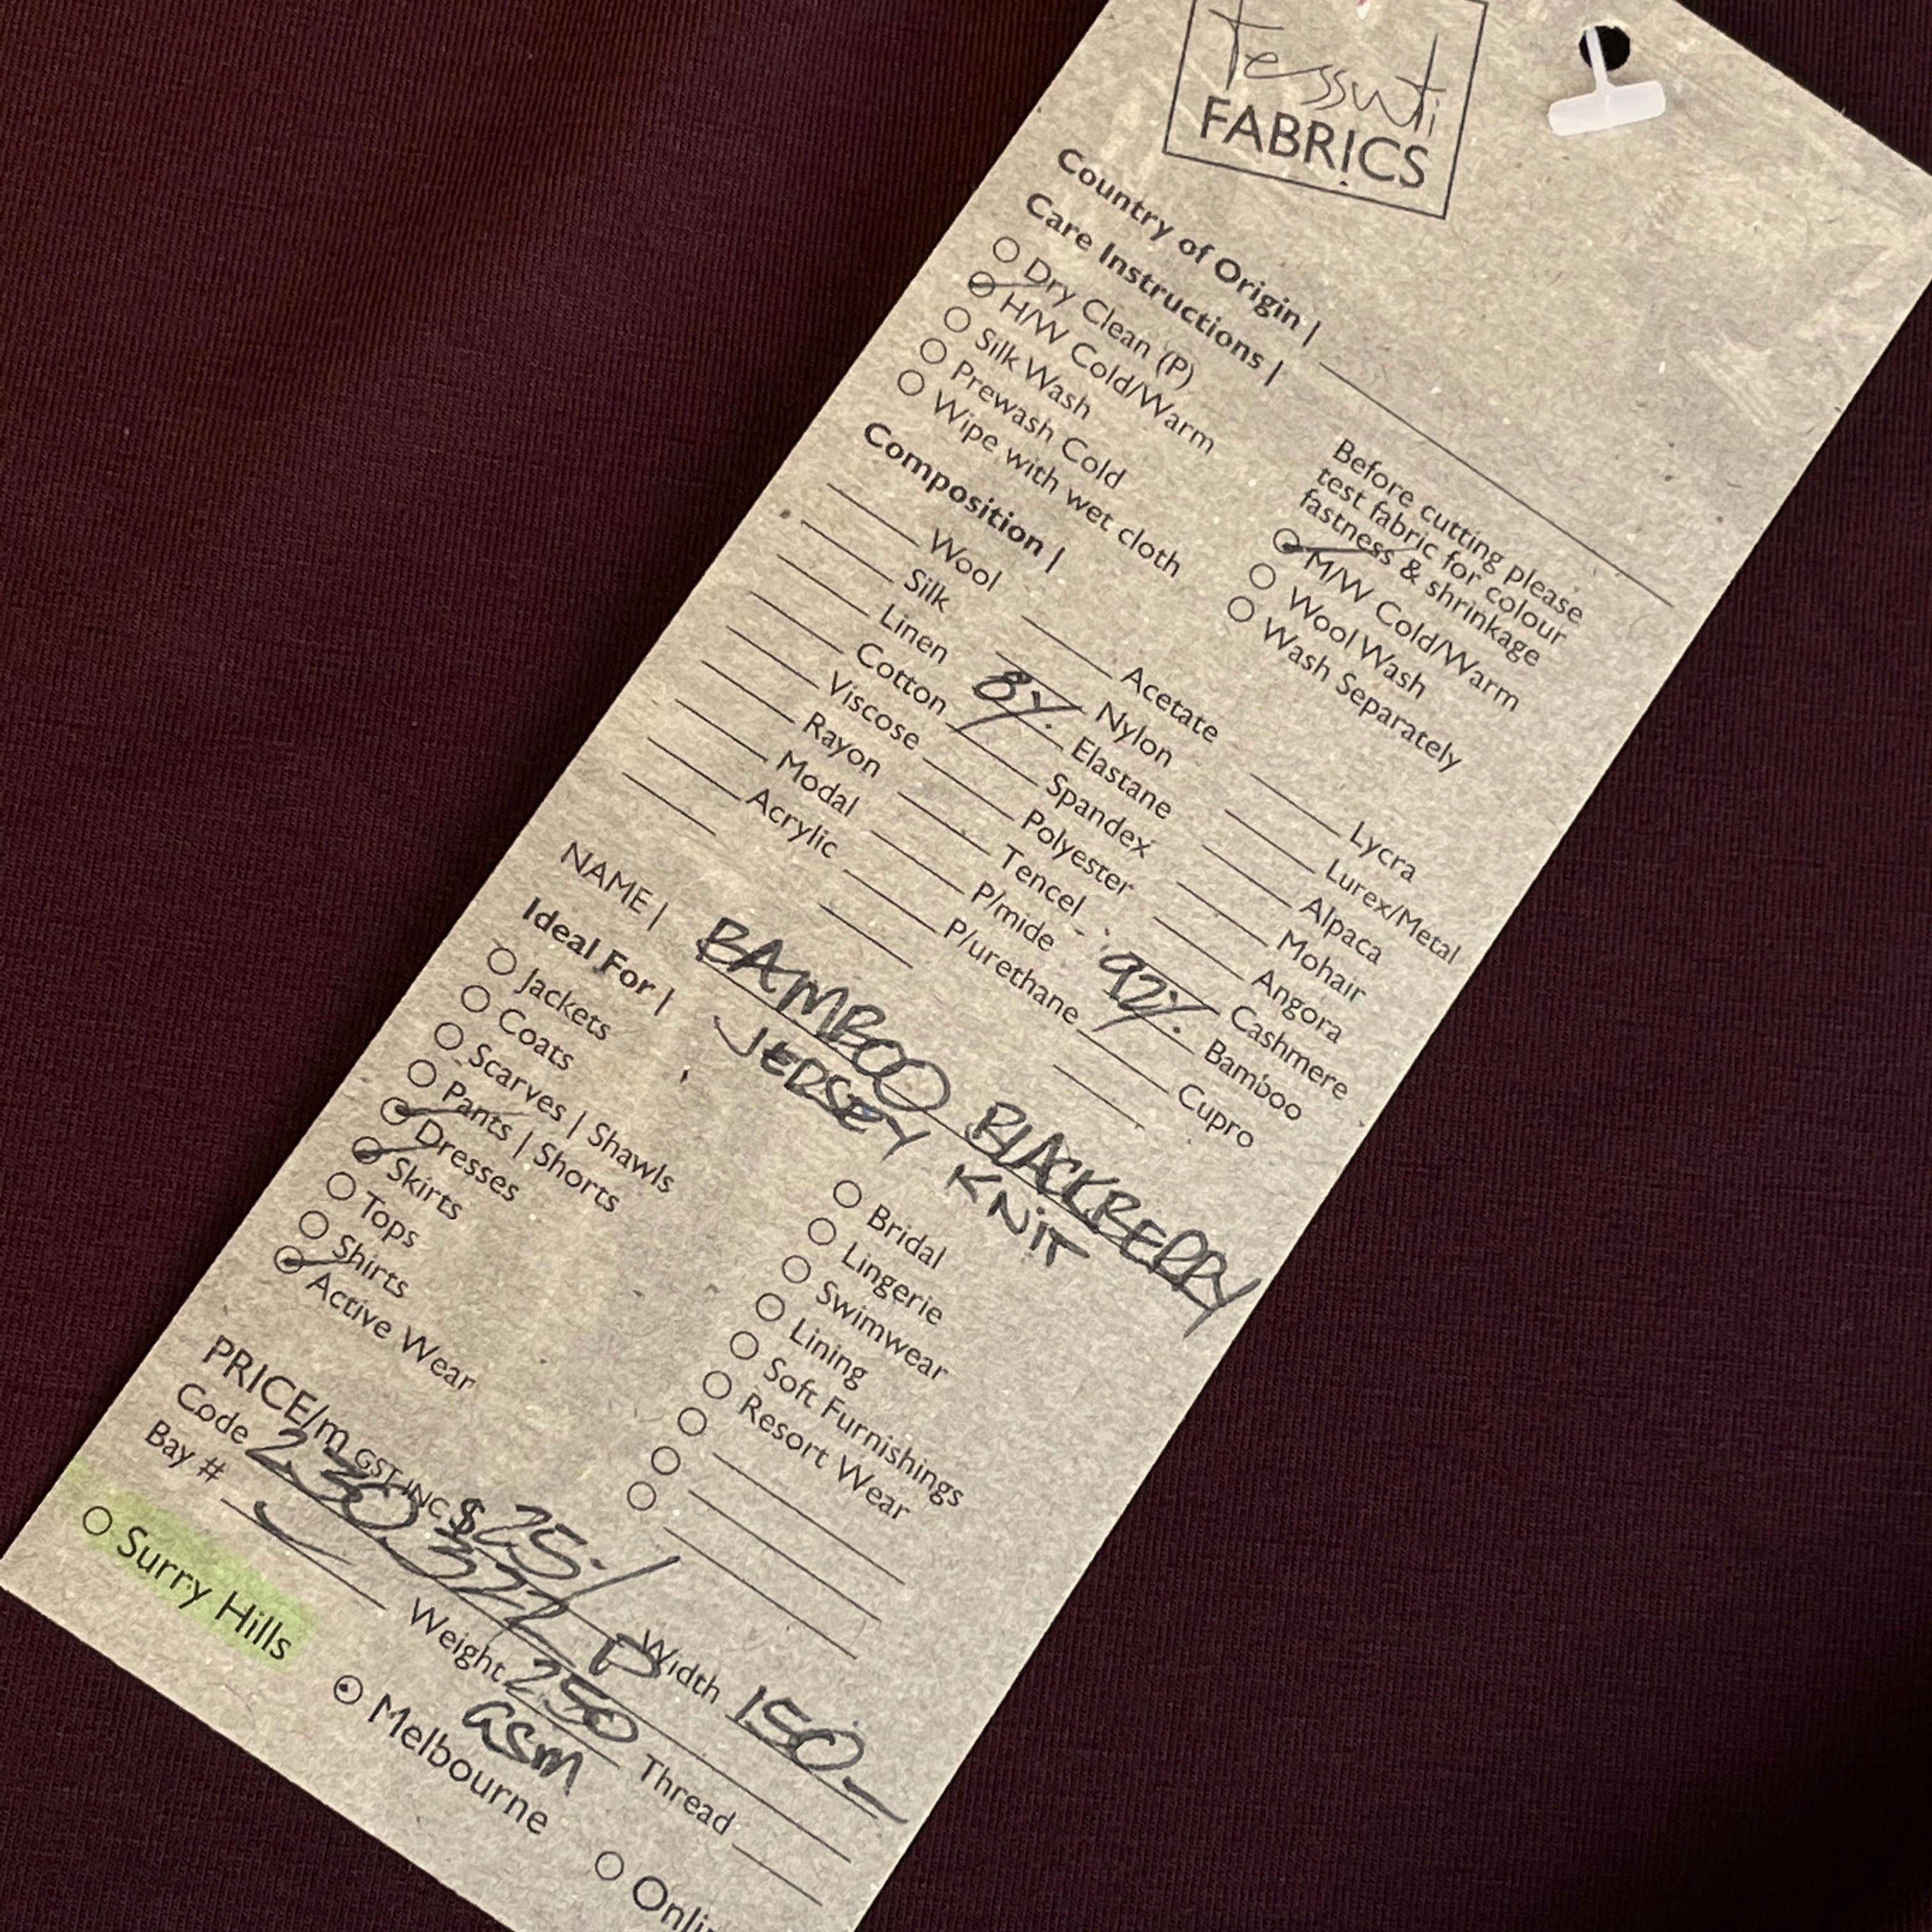 tessuti
FABRICS
Country of Origin |
Care Instructions |
Dry Clean (P)
H/W Cold/Warm
Silk Wash
Prewash Cold
Wipe with wet cloth
Before cutting please
test fabric for colour
fastness & shrinkage
M/W Cold/Warm
Wool Wash
Wash Separately
Composition |
Wool
Silk
Linen
Cotton
Viscose
Rayon
Modal
Acrylic
Acetate
Nylon
8% Elastane
Spandex
Polyester
Tencel
P/mide
P/urethane
Lycra
Lurex/Metal
Alpaca
Mohair
Angora
Cashmere
92% Bamboo
Cupro
NAME | BAMBOO BLACKBERRY
JERSEY KNIT
Ideal For |
Jackets
Coats
Scarves | Shawls
Pants | Shorts
Dresses
Skirts
Tops
Shirts
Active Wear
Bridal
Lingerie
Swimwear
Lining
Soft Furnishings
Resort Wear
PRICE/m GST INC $25.
Code 230 Width 150
Bay # Weight 250 Thread
GSM
Surry Hills Melbourne